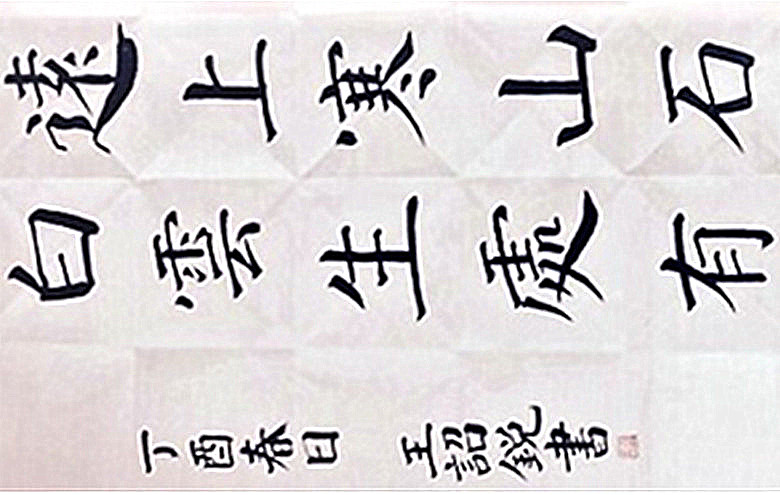 遠上寒山石
白雲生處有
丁酉春日 王詔銳書